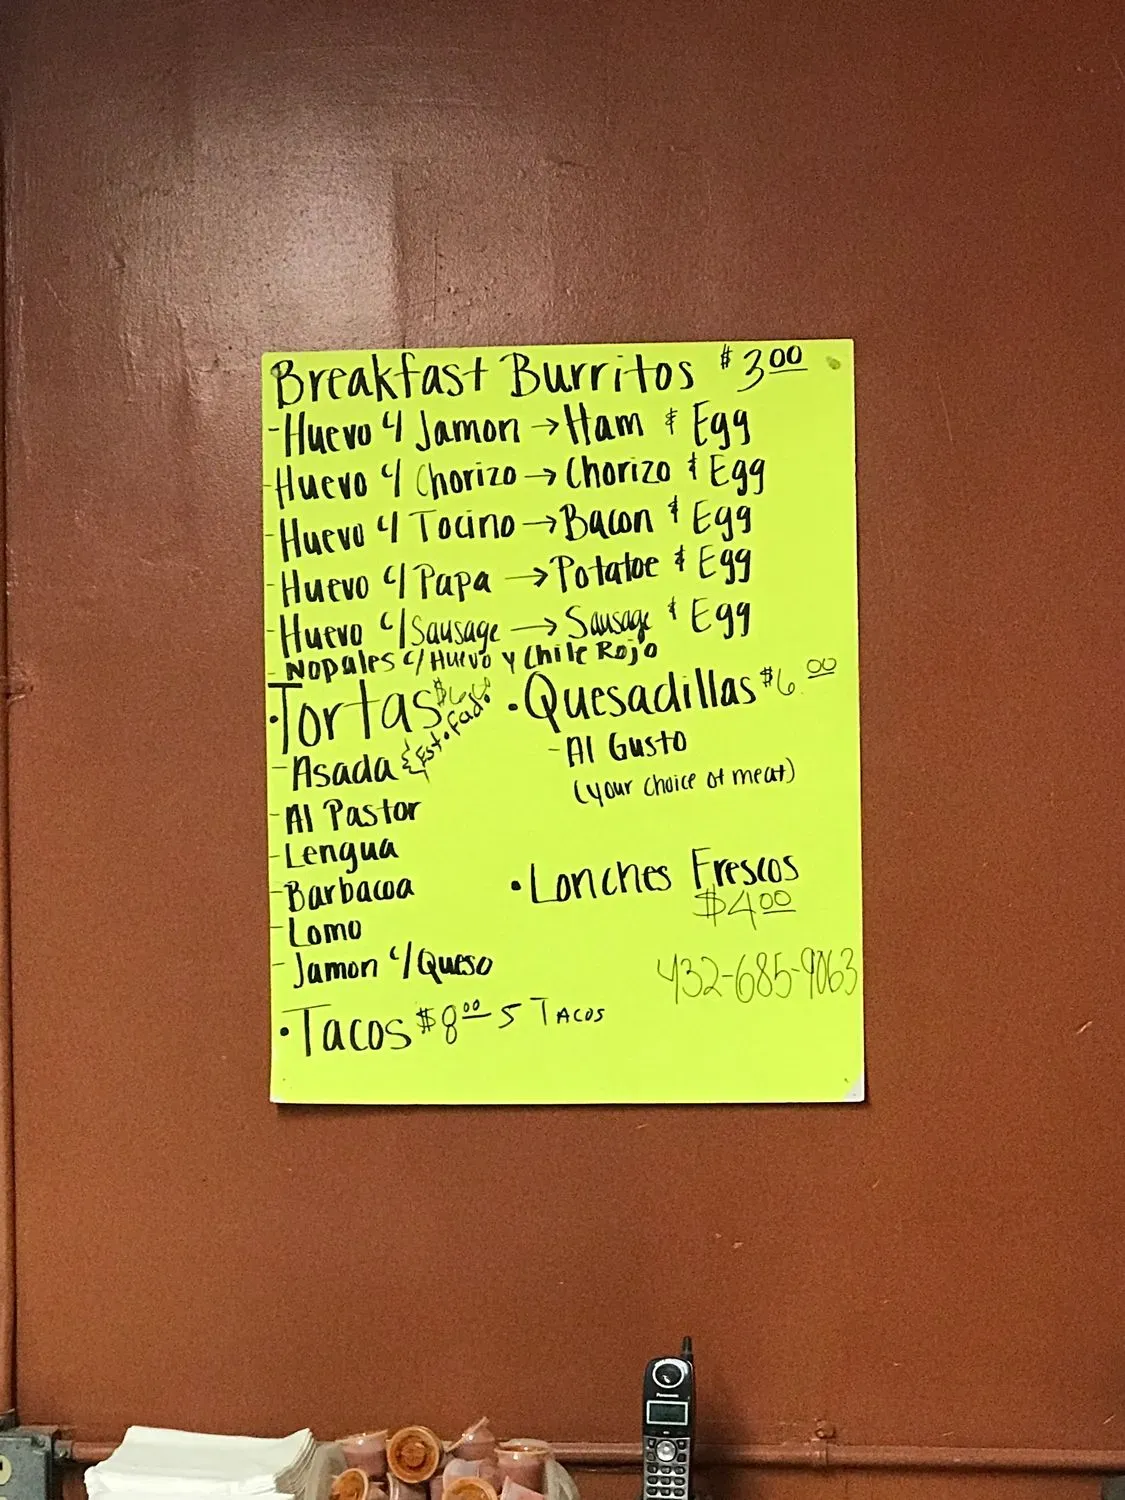 Breakfast Burritos $3.00
- Huevo c/ Jamon → Ham & Egg
- Huevo c/ Chorizo → Chorizo & Egg
- Huevo c/ Tocino → Bacon & Egg
- Huevo c/ Papa → Potatoe & Egg
- Huevo c/ Sausage → Sausage & Egg
- Nopales c/ Huevo y Chile Rojo
• Tortas $6.00
- Asada
- Al Pastor
- Lengua
- Barbacoa
- Lomo
- Jamon c/ Queso
• Quesadillas $6.00
- Al Gusto
(your choice of meat)
• Lonches Frescos
$4.00
432-685-9063
• Tacos $8.00 5 Tacos
Panasonic